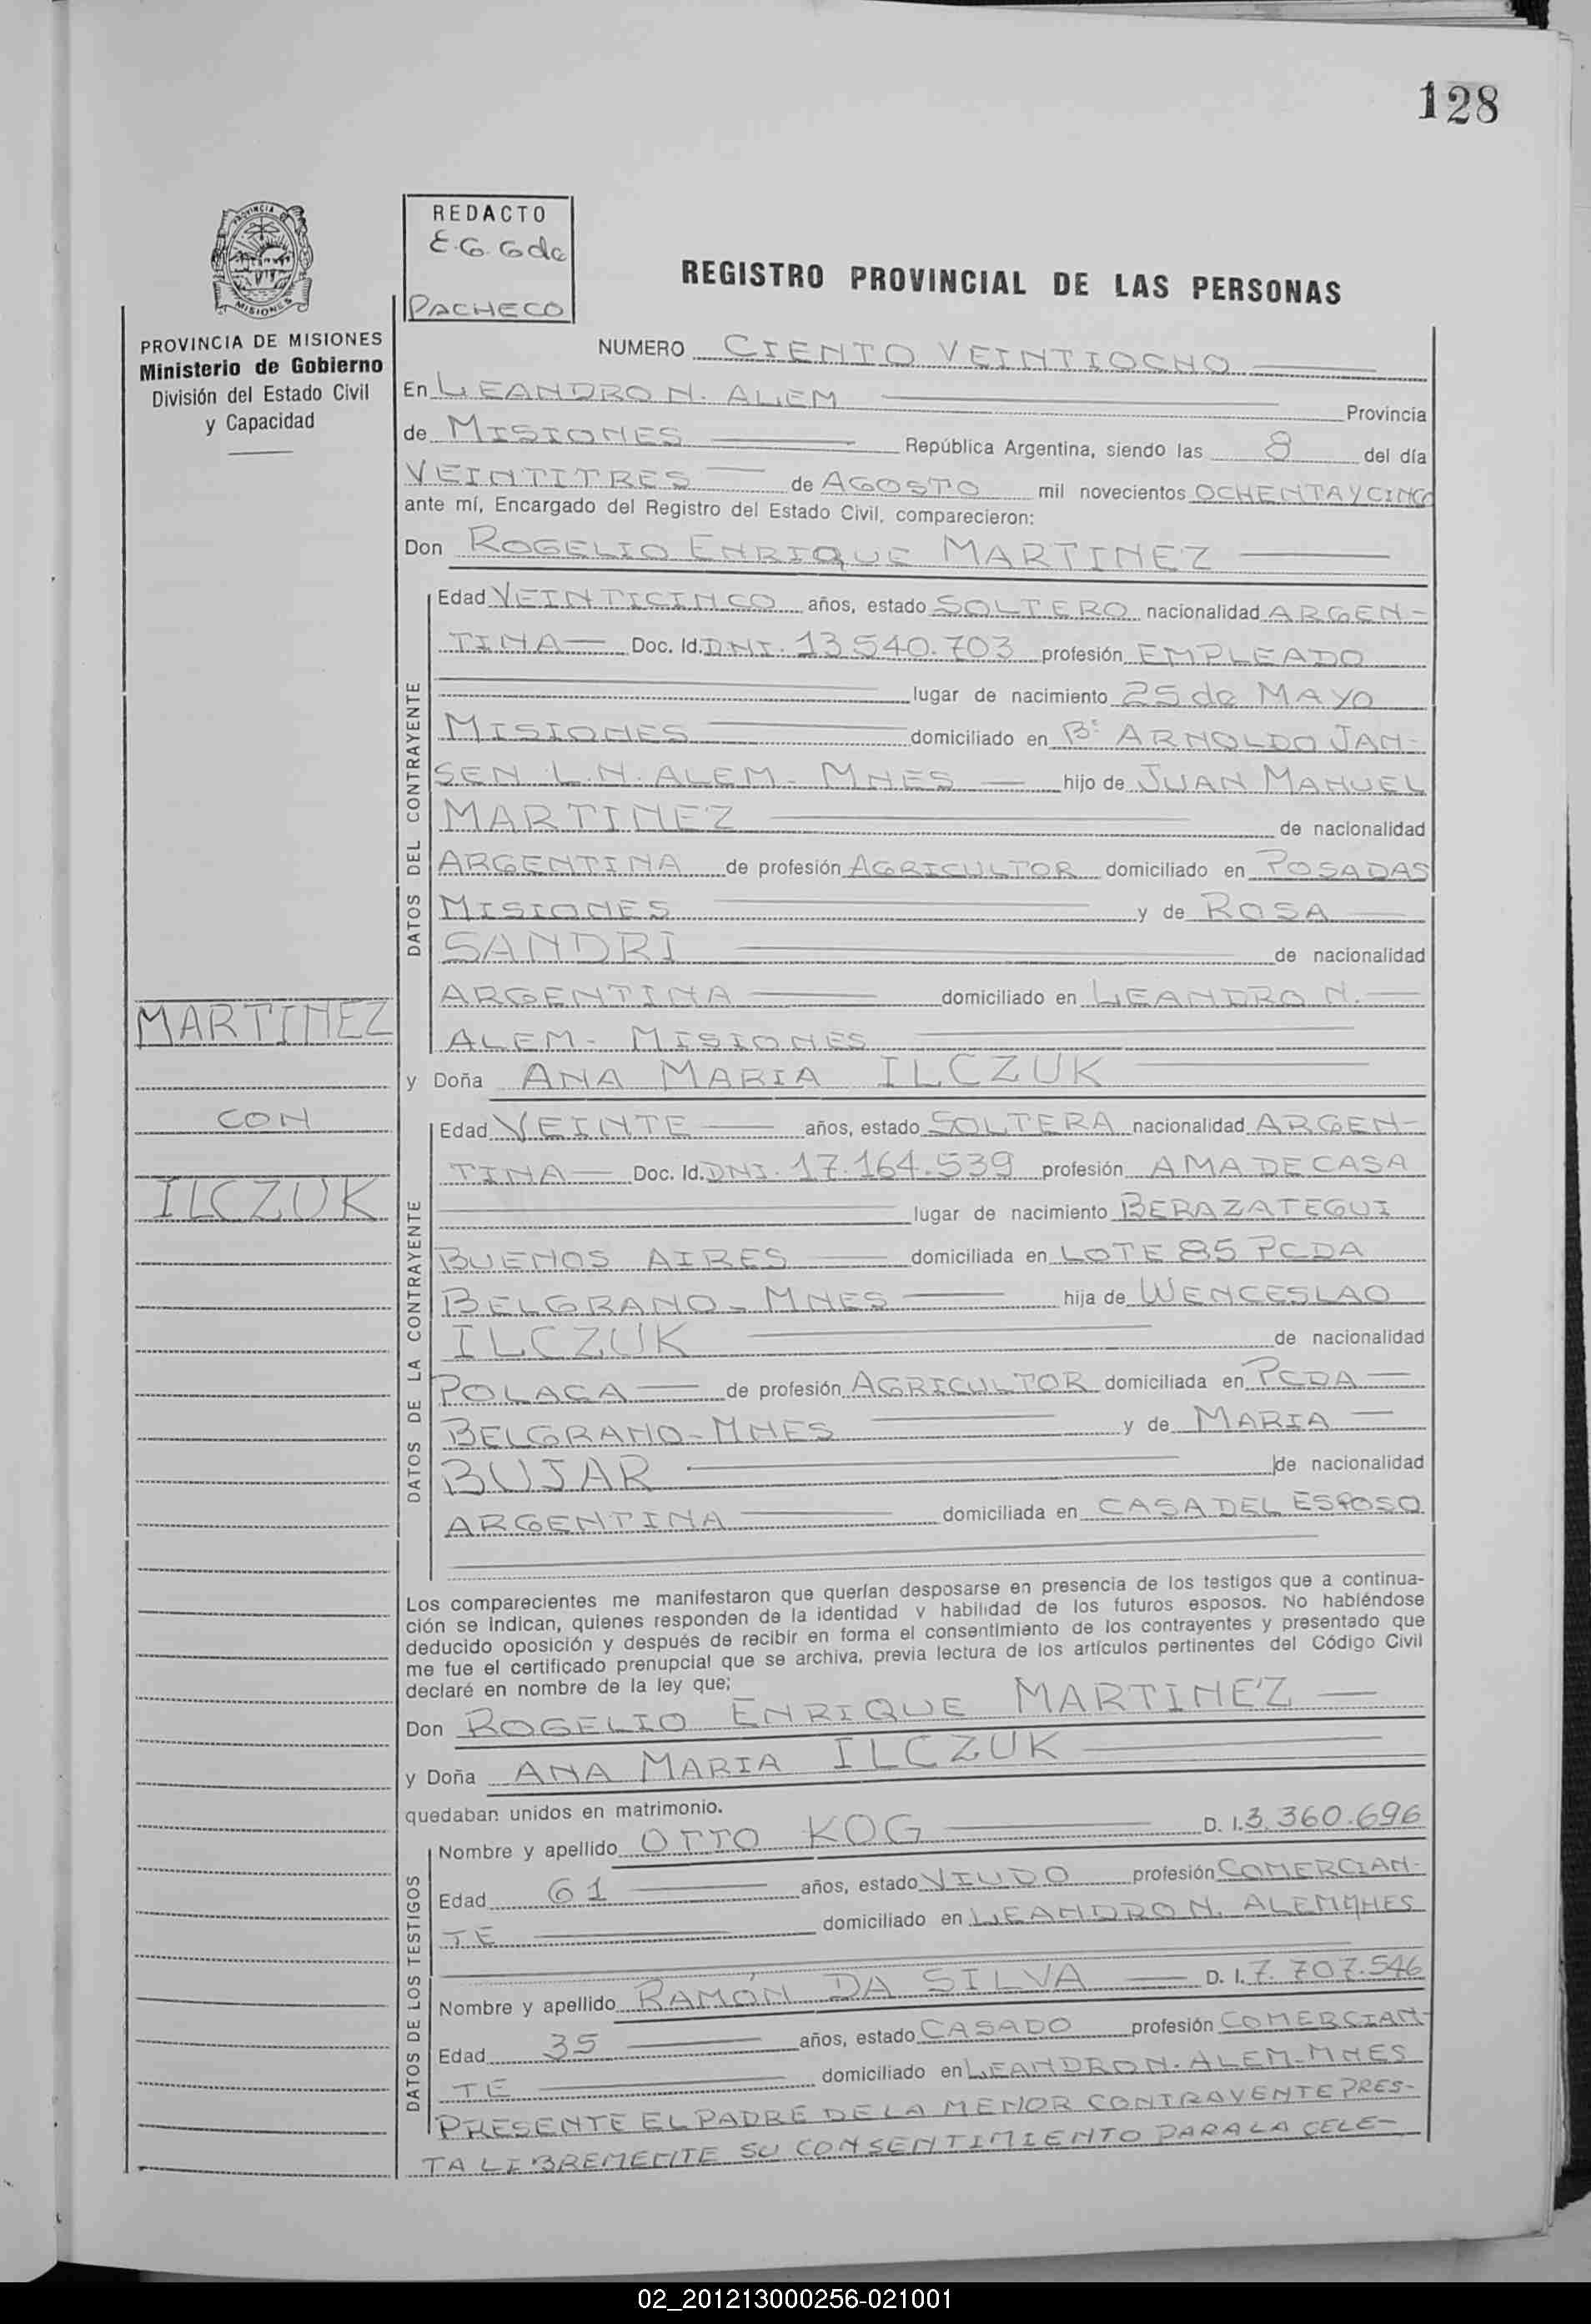 128
PROVINCIA DE
MISIONES
REDACTO
E.G. Gda
PACHECO
REGISTRO PROVINCIAL DE LAS PERSONAS
PROVINCIA DE MISIONES
Ministerio de Gobierno
División del Estado Civil
y Capacidad
NUMERO CIENTO VEINTIOCHO
En LEANDRO N. ALEM Provincia
de MISIONES República Argentina, siendo las 8 del día
VEINTITRES de AGOSTO mil novecientos OCHENTA Y CINCO
ante mí, Encargado del Registro del Estado Civil, comparecieron:
Don ROGELIO ENRIQUE MARTINEZ
DATOS DEL CONTRAYENTE
Edad VEINTICINCO años, estado SOLTERO nacionalidad ARGEN-
TINA Doc. Id. DNI. 13.540.703 profesión EMPLEADO
lugar de nacimiento 25 de MAYO
MISIONES domiciliado en Bº ARNOLDO JAN-
SEN L.N. ALEM - MNES hijo de JUAN MANUEL
MARTINEZ de nacionalidad
ARGENTINA de profesión AGRICULTOR domiciliado en POSADAS
MISIONES y de ROSA
SANDRI de nacionalidad
ARGENTINA domiciliado en LEANDRO N.
ALEM - MISIONES
MARTINEZ
CON
ILCZUK
y Doña ANA MARIA ILCZUK
DATOS DE LA CONTRAYENTE
Edad VEINTE años, estado SOLTERA nacionalidad ARGEN-
TINA Doc. Id. DNI. 17.164.539 profesión AMA DE CASA
lugar de nacimiento BERAZATEGUI
BUENOS AIRES domiciliada en LOTE 85 PCDA
BELGRANO - MNES hija de WENCESLAO
ILCZUK de nacionalidad
POLACA de profesión AGRICULTOR domiciliada en PCDA
BELGRANO - MNES y de MARIA
BUJAR de nacionalidad
ARGENTINA domiciliada en CASA DEL ESPOSO
Los comparecientes me manifestaron que querían desposarse en presencia de los testigos que a continua-
ción se indican, quienes responden de la identidad y habilidad de los futuros esposos. No habiéndose
deducido oposición y después de recibir en forma el consentimiento de los contrayentes y presentado que
me fue el certificado prenupcial que se archiva, previa lectura de los artículos pertinentes del Código Civil
declaré en nombre de la ley que;
Don ROGELIO ENRIQUE MARTINEZ
y Doña ANA MARIA ILCZUK
quedaban unidos en matrimonio.
DATOS DE LOS TESTIGOS
Nombre y apellido OTTO KOG D. I. 3.360.696
Edad 61 años, estado VIUDO profesión COMERCIAN-
TE domiciliado en LEANDRO N. ALEM MNES
Nombre y apellido RAMÓN DA SILVA D. I. 7.707.546
Edad 35 años, estado CASADO profesión COMERCIAN-
TE domiciliado en LEANDRO N. ALEM - MNES
PRESENTE EL PADRE DE LA MENOR CONTRAYENTE PRES-
TA LIBREMENTE SU CONSENTIMIENTO PARA LA CELE-
02_201213000256-021001